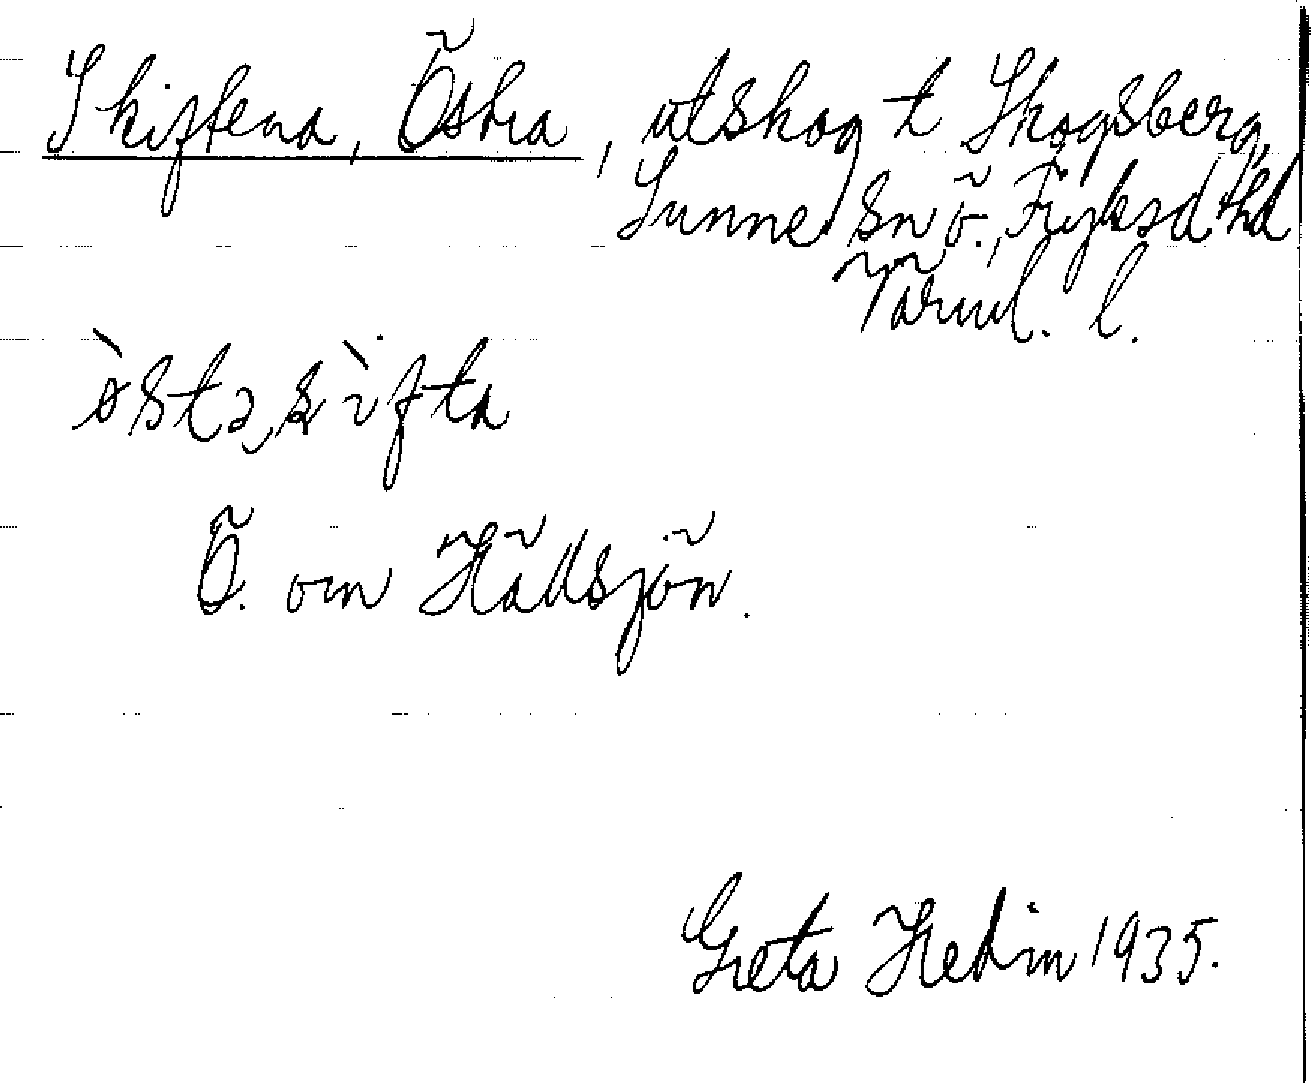 Skiftena, Östra, utskog t Skogsberg,
Sunne sn ö., Fryksd hd
Värml. l.
östa sifta
Ö. om Hållsjön.
Greta Hedin 1935.